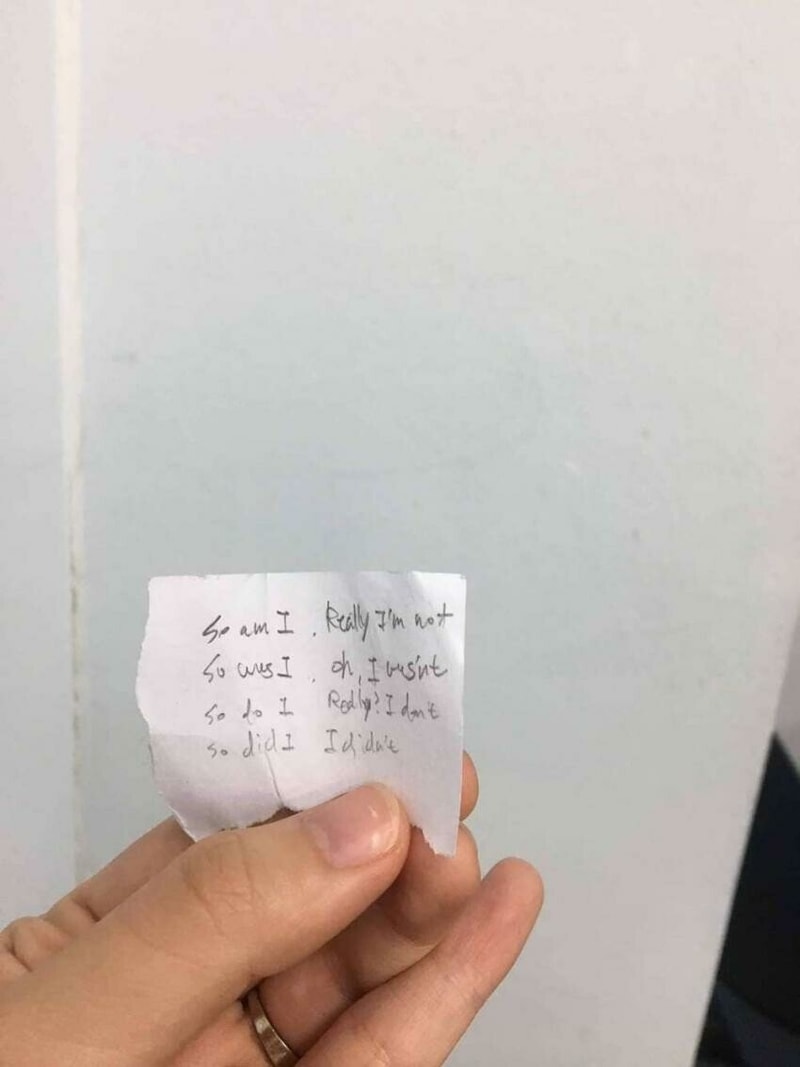 So am I . Really I'm not
So was I . oh, I wasn't
so do I Really? I don't
so did I I didn't